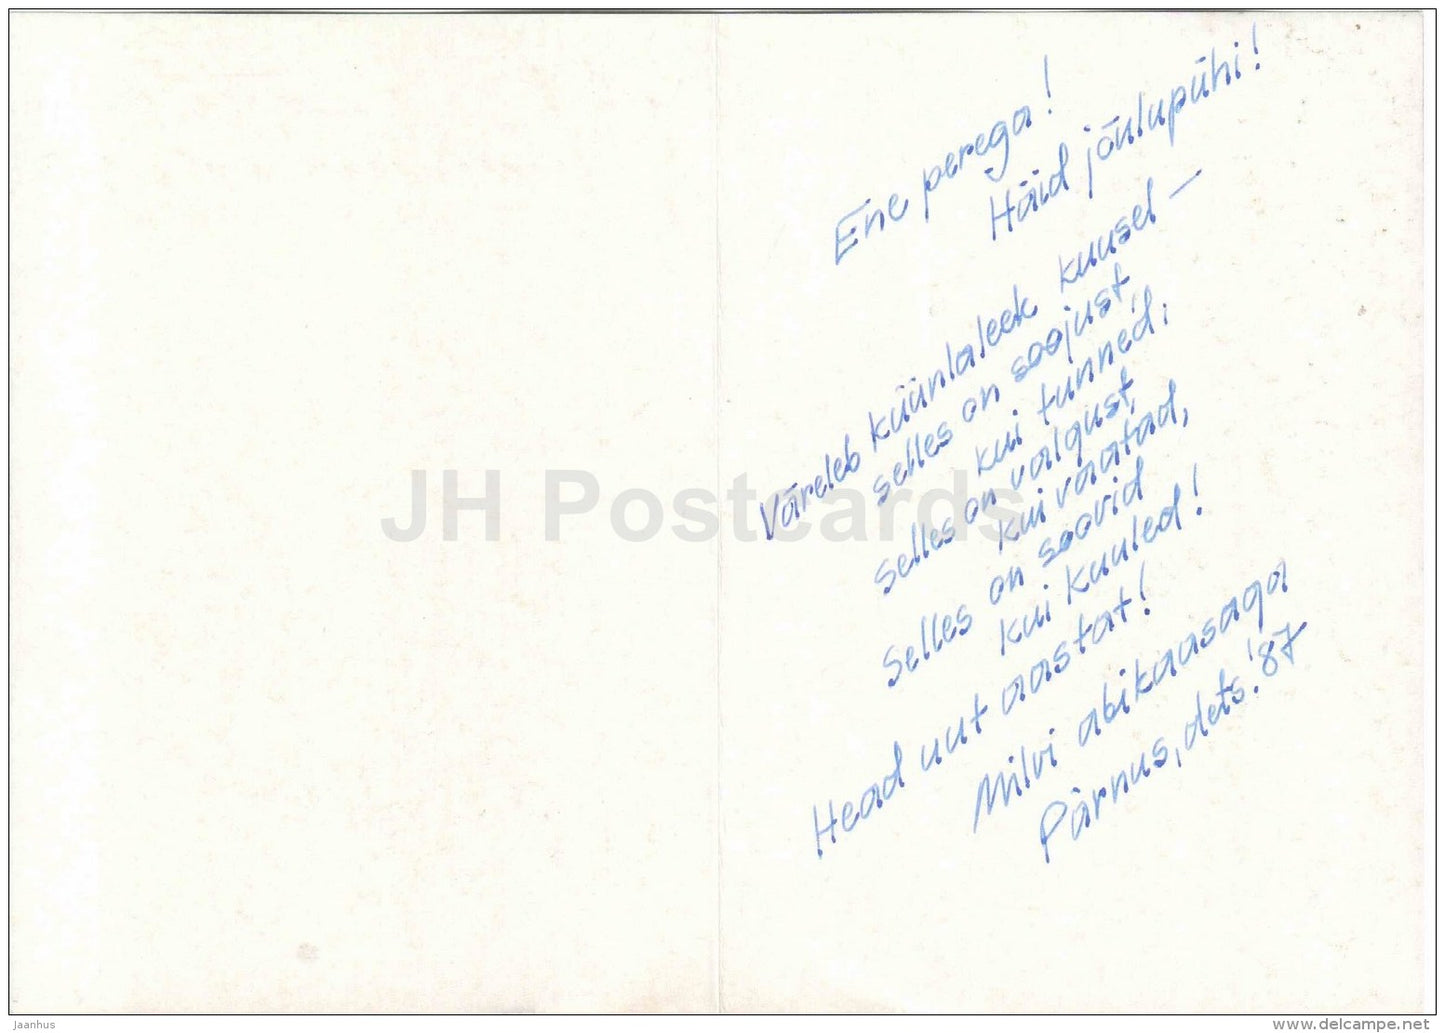 Ene perega!
Häid jõulupühi!
Väreleb küünlaleek kuusel –
selles on soojust
kui tunned.
Selles on valgust,
kui vaatad,
Selles on soovid
kui kuuled!
Head uut aastat!
Milvi abikaasaga
Pärnus, dets. '87
JH Postcards
jaanhus
www.delcampe.net